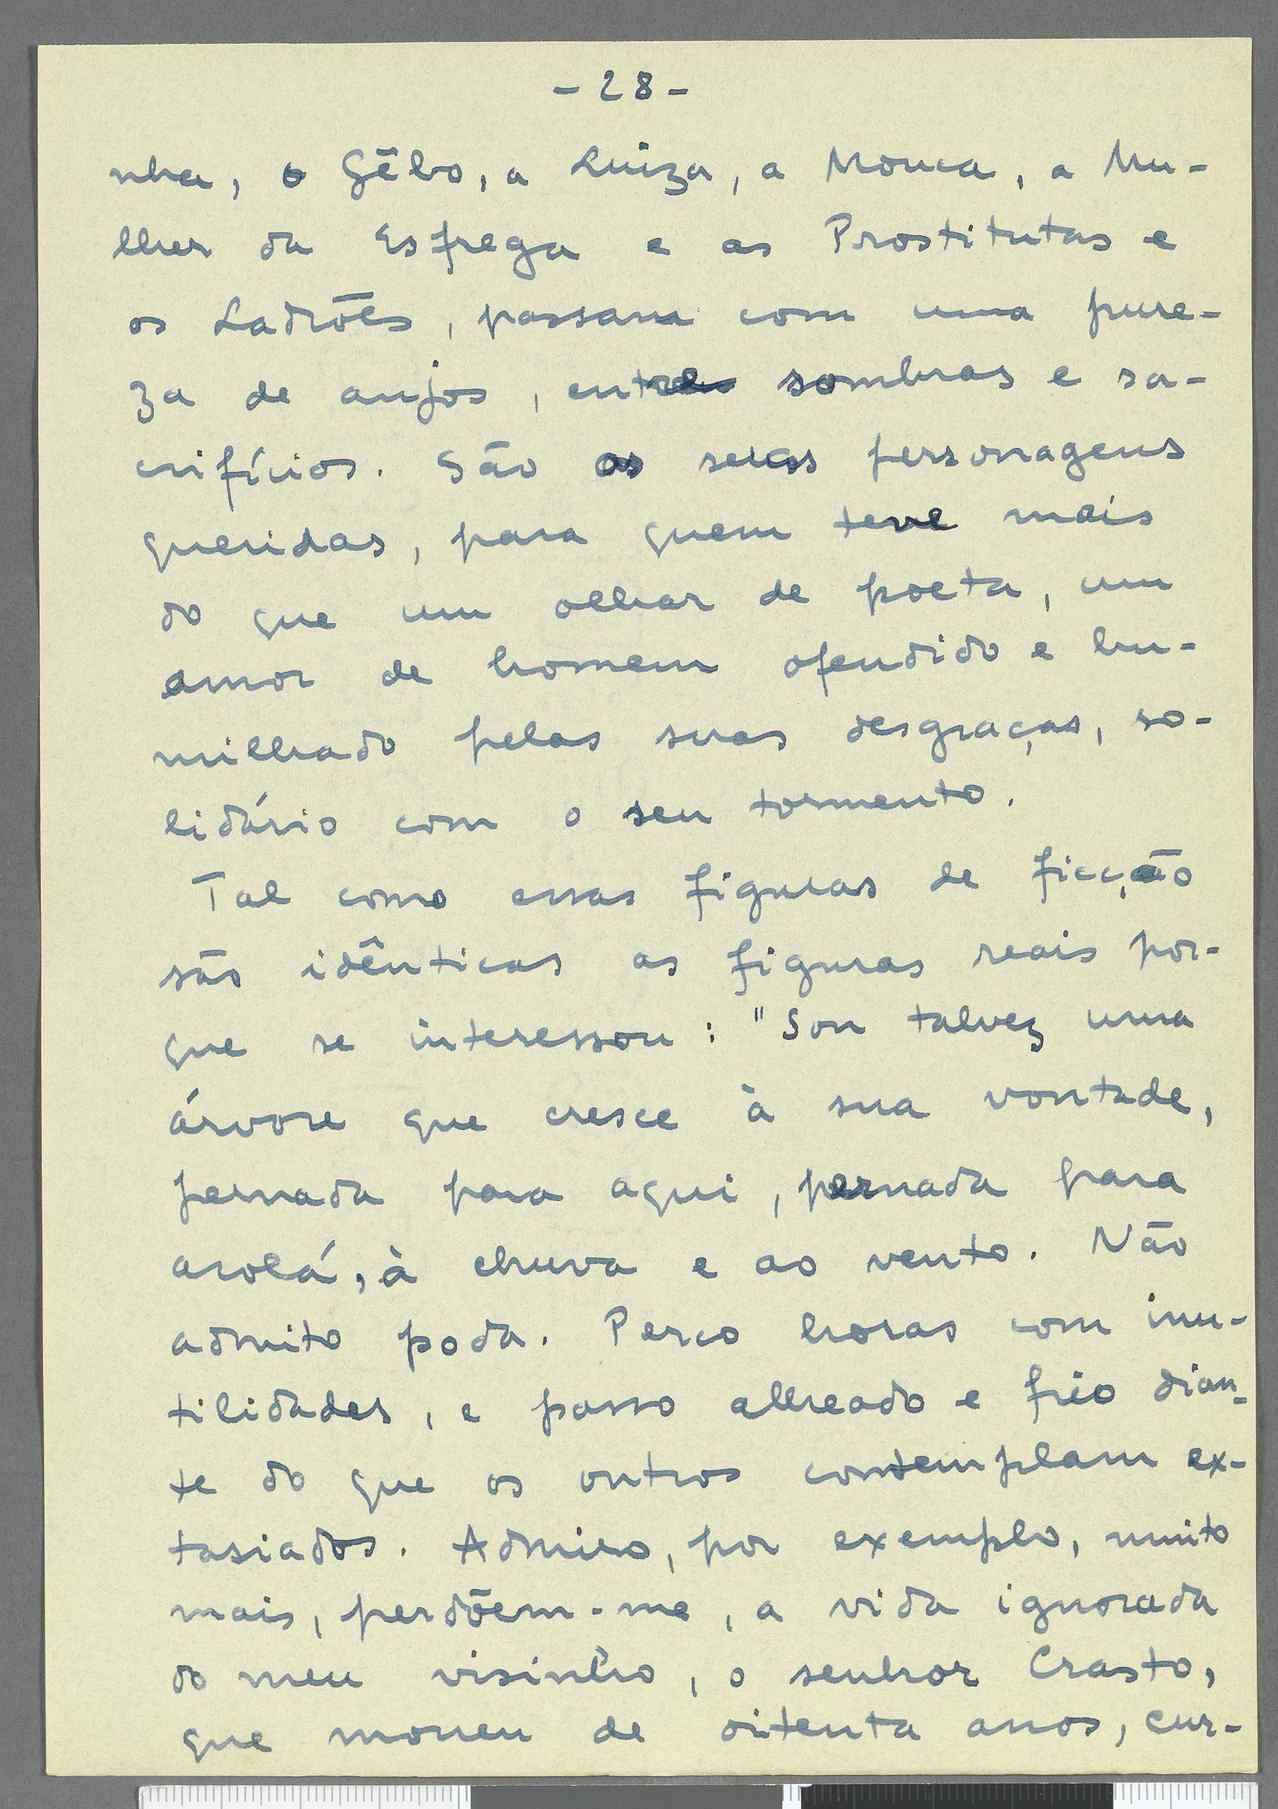 - 28 -
nha, o Gêbo, a Luiza, a Mouca, a Mu-
lher da Esfrega e as Prostitutas e
os Ladrões, passam com uma pure-
za de anjos, entre sombras e sa-
crifícios. São as suas personagens
queridas, para quem teve mais
do que um olhar de poeta, um
amor de homem ofendido e hu-
milhado pelas suas desgraças, so-
lidário com o seu tormento.
Tal como essas figuras de ficção
são idênticas as figuras reais por-
que se interessou: "Sou talvez uma
árvore que cresce à sua vontade,
pernada para aqui, pernada para
acolá, à chuva e ao vento. Não
admito poda. Perco horas com inu-
tilidades, e passo alheado e frio dian-
te do que os outros contemplam ex-
tasiados. Admiro, por exemplo, muito
mais, perdõem-me, a vida ignorada
do meu visinho, o senhor Crasto,
que morreu de oitenta anos, cur-